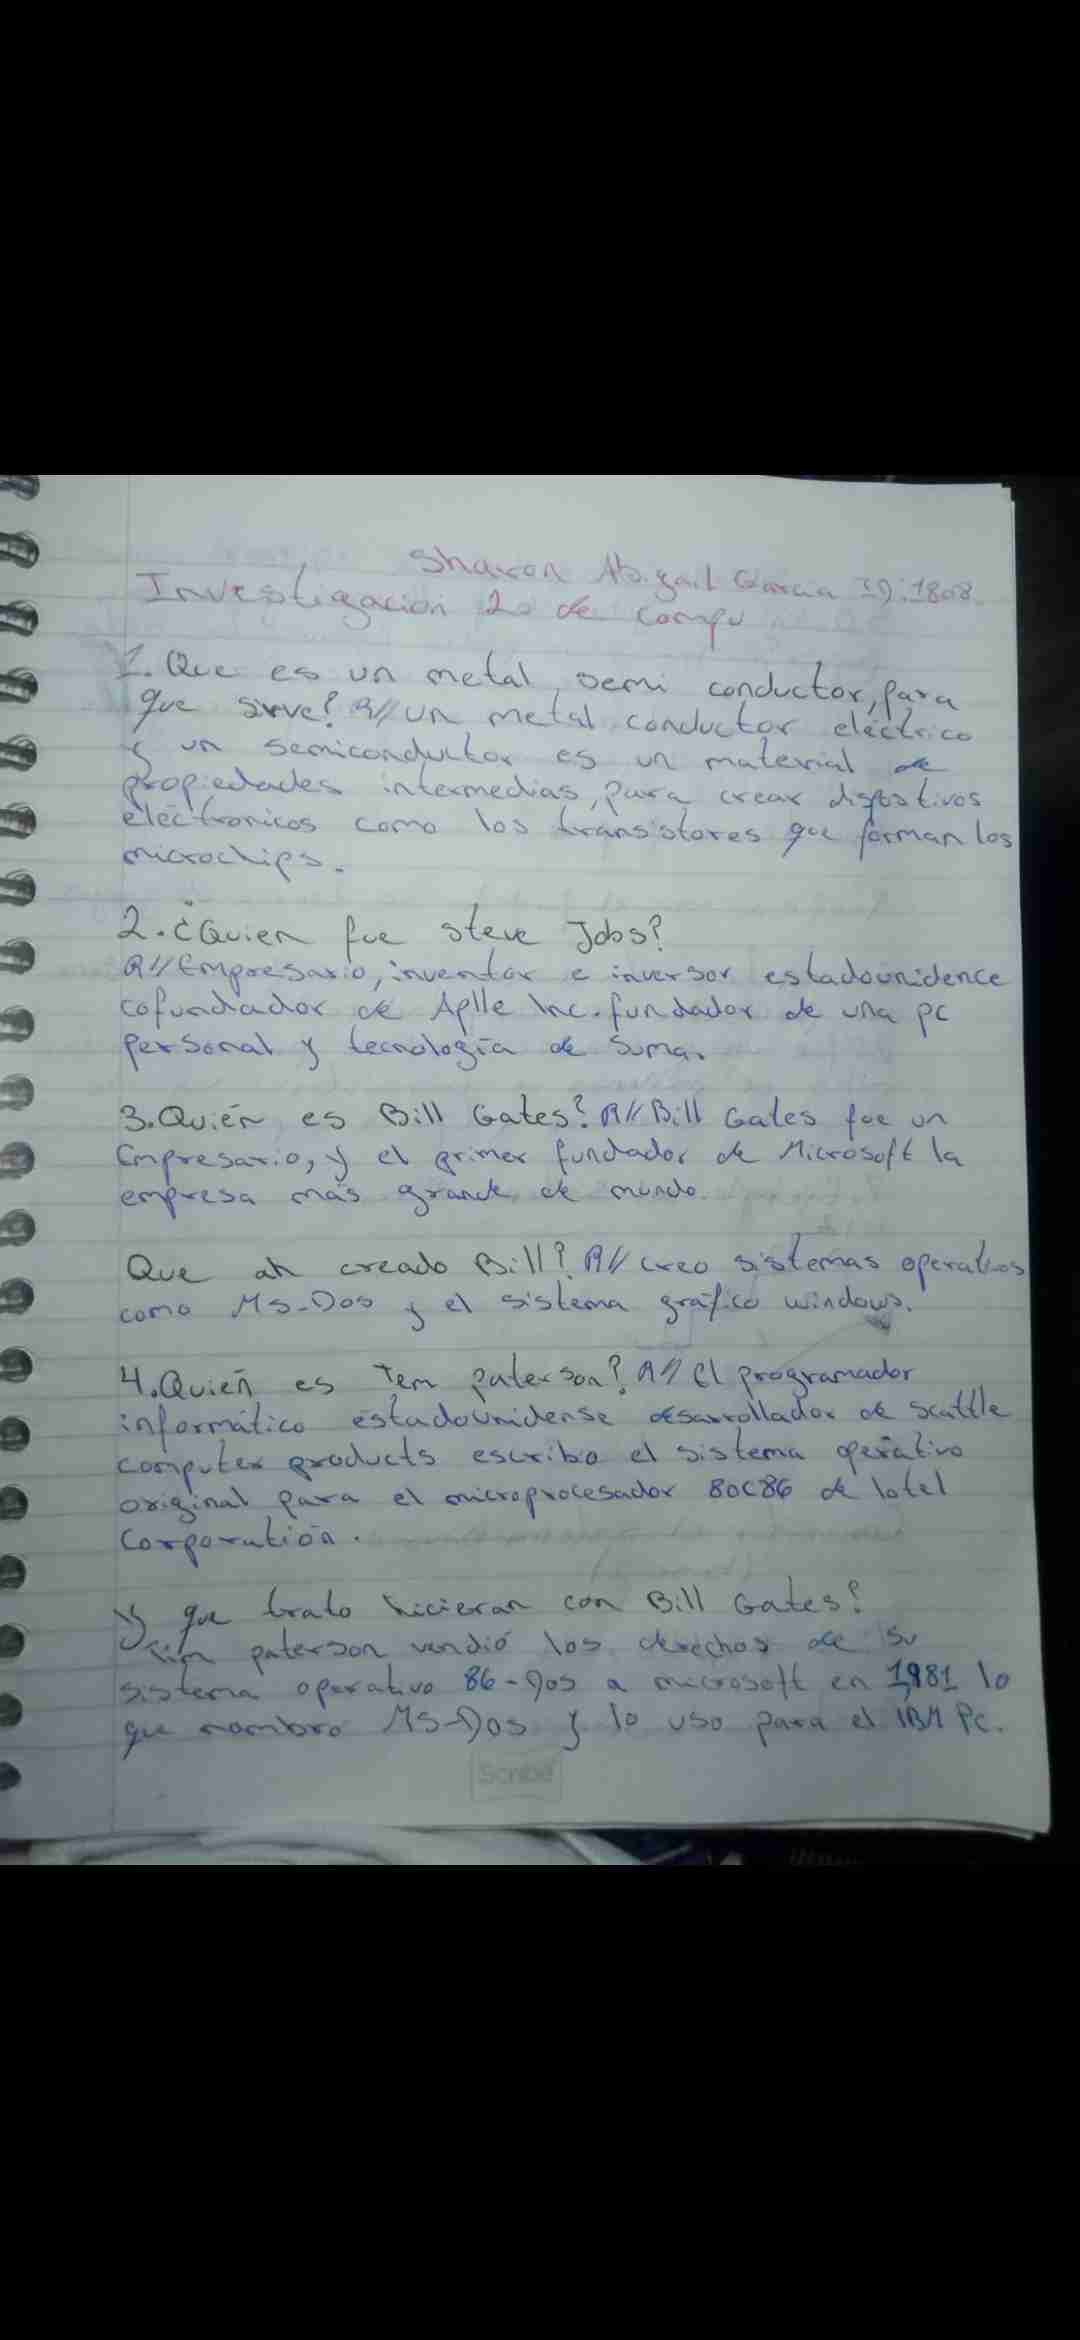 Sharon Abigail Garcia ID:1808.
Investigacion 2o de compu
1. Que es un metal, semi conductor, para
que sirve? R// un metal conductor eléctrico
y un semiconductor es un material de
propiedades intermedias, para crear
eléctronicos como los transistores que forman los
microchips.
2. ¿Quien fue steve Jobs?
R// Empresario, inventor e inversor estadounidence
cofundador de Aplle Inc. fundador de una pc
personal y tecnología de suma.
3. Quién es Bill Gates? R// Bill Gates fue un
Empresario, y el primer fundador de Microsoft la
empresa más grande de mundo.
Que ah creado Bill? R// creo sistemas operativos
como MS-Dos y el sistema gráfico windows.
4. Quién es Tem paterson? R// El programador
informático estadounidense desarrollador de seattle
computer products escribio el sistema operativo
original para el microprocesador 80C86 de Intel
Corporation.
y que trato hicieran con Bill Gates?
Tim paterson vendió los derechos de su
sistema operativo 86-Dos a microsoft en 1,981 lo
que nombro MS-Dos y lo uso para el IBM Pc.
Scribe